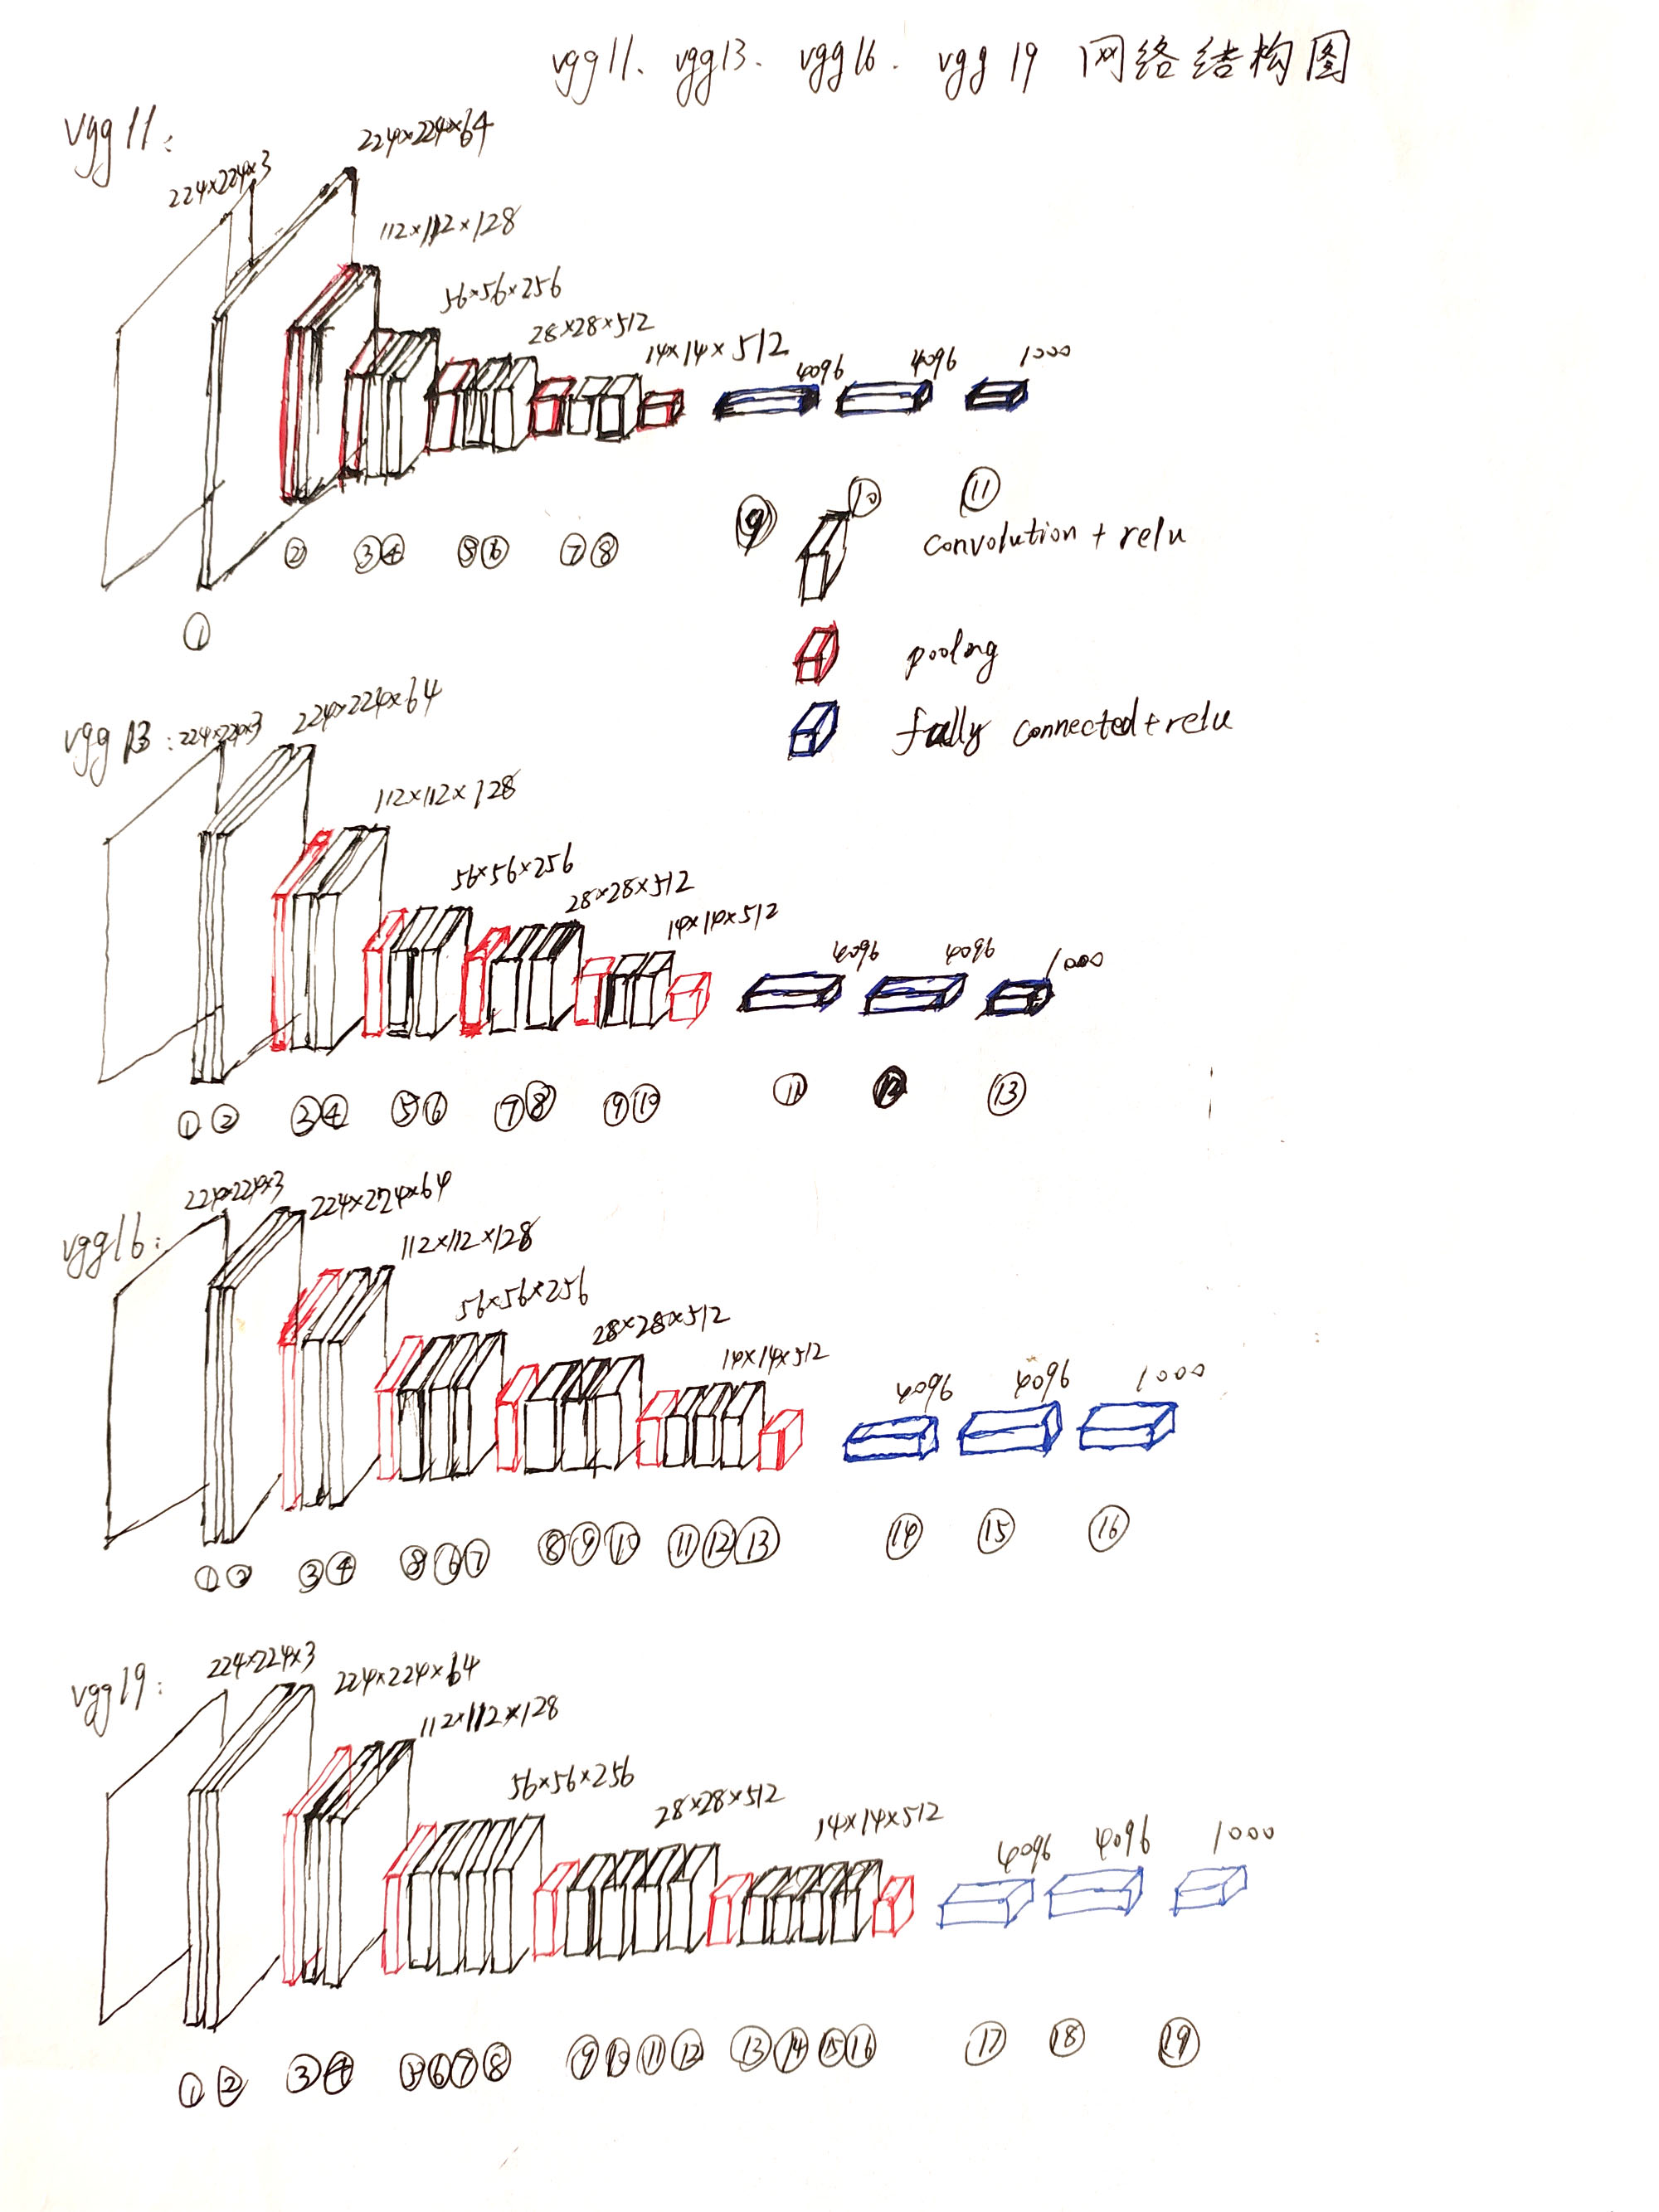 vgg11、vgg13、vgg16、vgg19 网络结构图
vgg11:
224×224×3
224×224×64
112×112×128
56×56×256
28×28×512
14×14×512
4096
4096
1000
① ② ③ ④ ⑤ ⑥ ⑦ ⑧ ⑨ ⑩ ⑪
convolution + relu
pooling
fully connected + relu
vgg13:
224×224×3
224×224×64
112×112×128
56×56×256
28×28×512
14×14×512
4096
4096
1000
① ② ③ ④ ⑤ ⑥ ⑦ ⑧ ⑨ ⑩ ⑪ ⑫ ⑬
vgg16:
224×224×3
224×224×64
112×112×128
56×56×256
28×28×512
14×14×512
4096
4096
1000
① ② ③ ④ ⑤ ⑥ ⑦ ⑧ ⑨ ⑩ ⑪ ⑫ ⑬ ⑭ ⑮ ⑯
vgg19:
224×224×3
224×224×64
112×112×128
56×56×256
28×28×512
14×14×512
4096
4096
1000
① ② ③ ④ ⑤ ⑥ ⑦ ⑧ ⑨ ⑩ ⑪ ⑫ ⑬ ⑭ ⑮ ⑯ ⑰ ⑱ ⑲